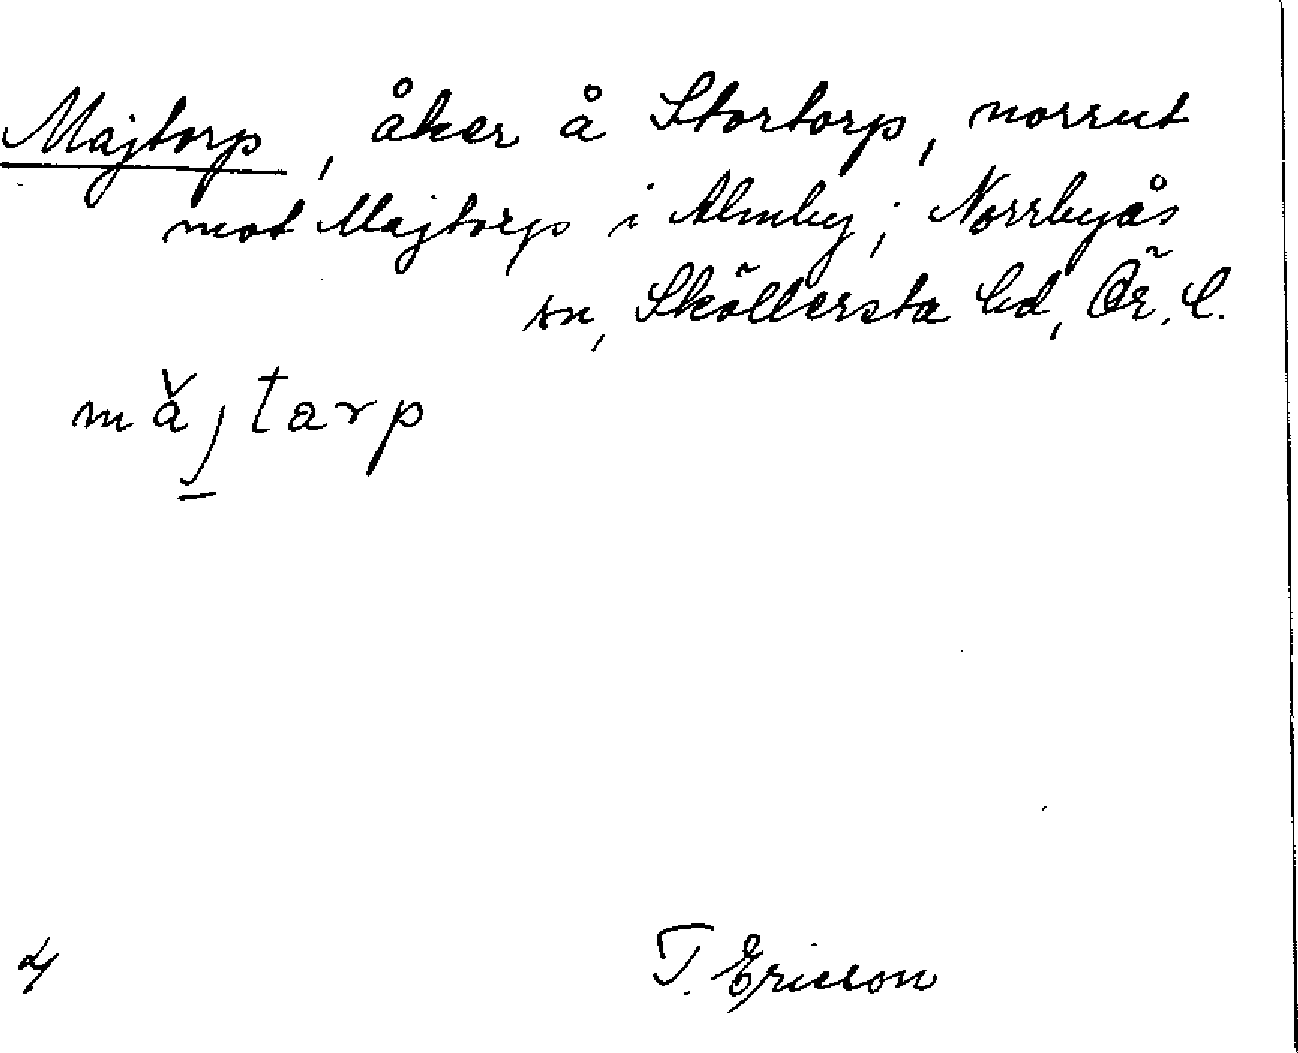 Majtorp, åker å Stortorp, norrut
mot Majtorp i Almby; Norrbyås
sn, Sköllersta hd, Ör. l.
măj̱tarp
4 T. Ericson